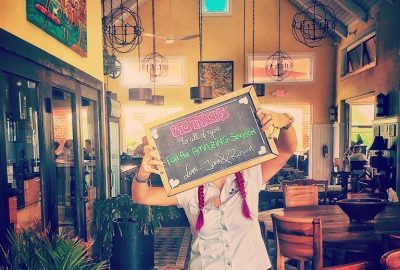 BIG THANKS
to all of you
FOR AN AMAZING SEASON
Love, Jann & Richard